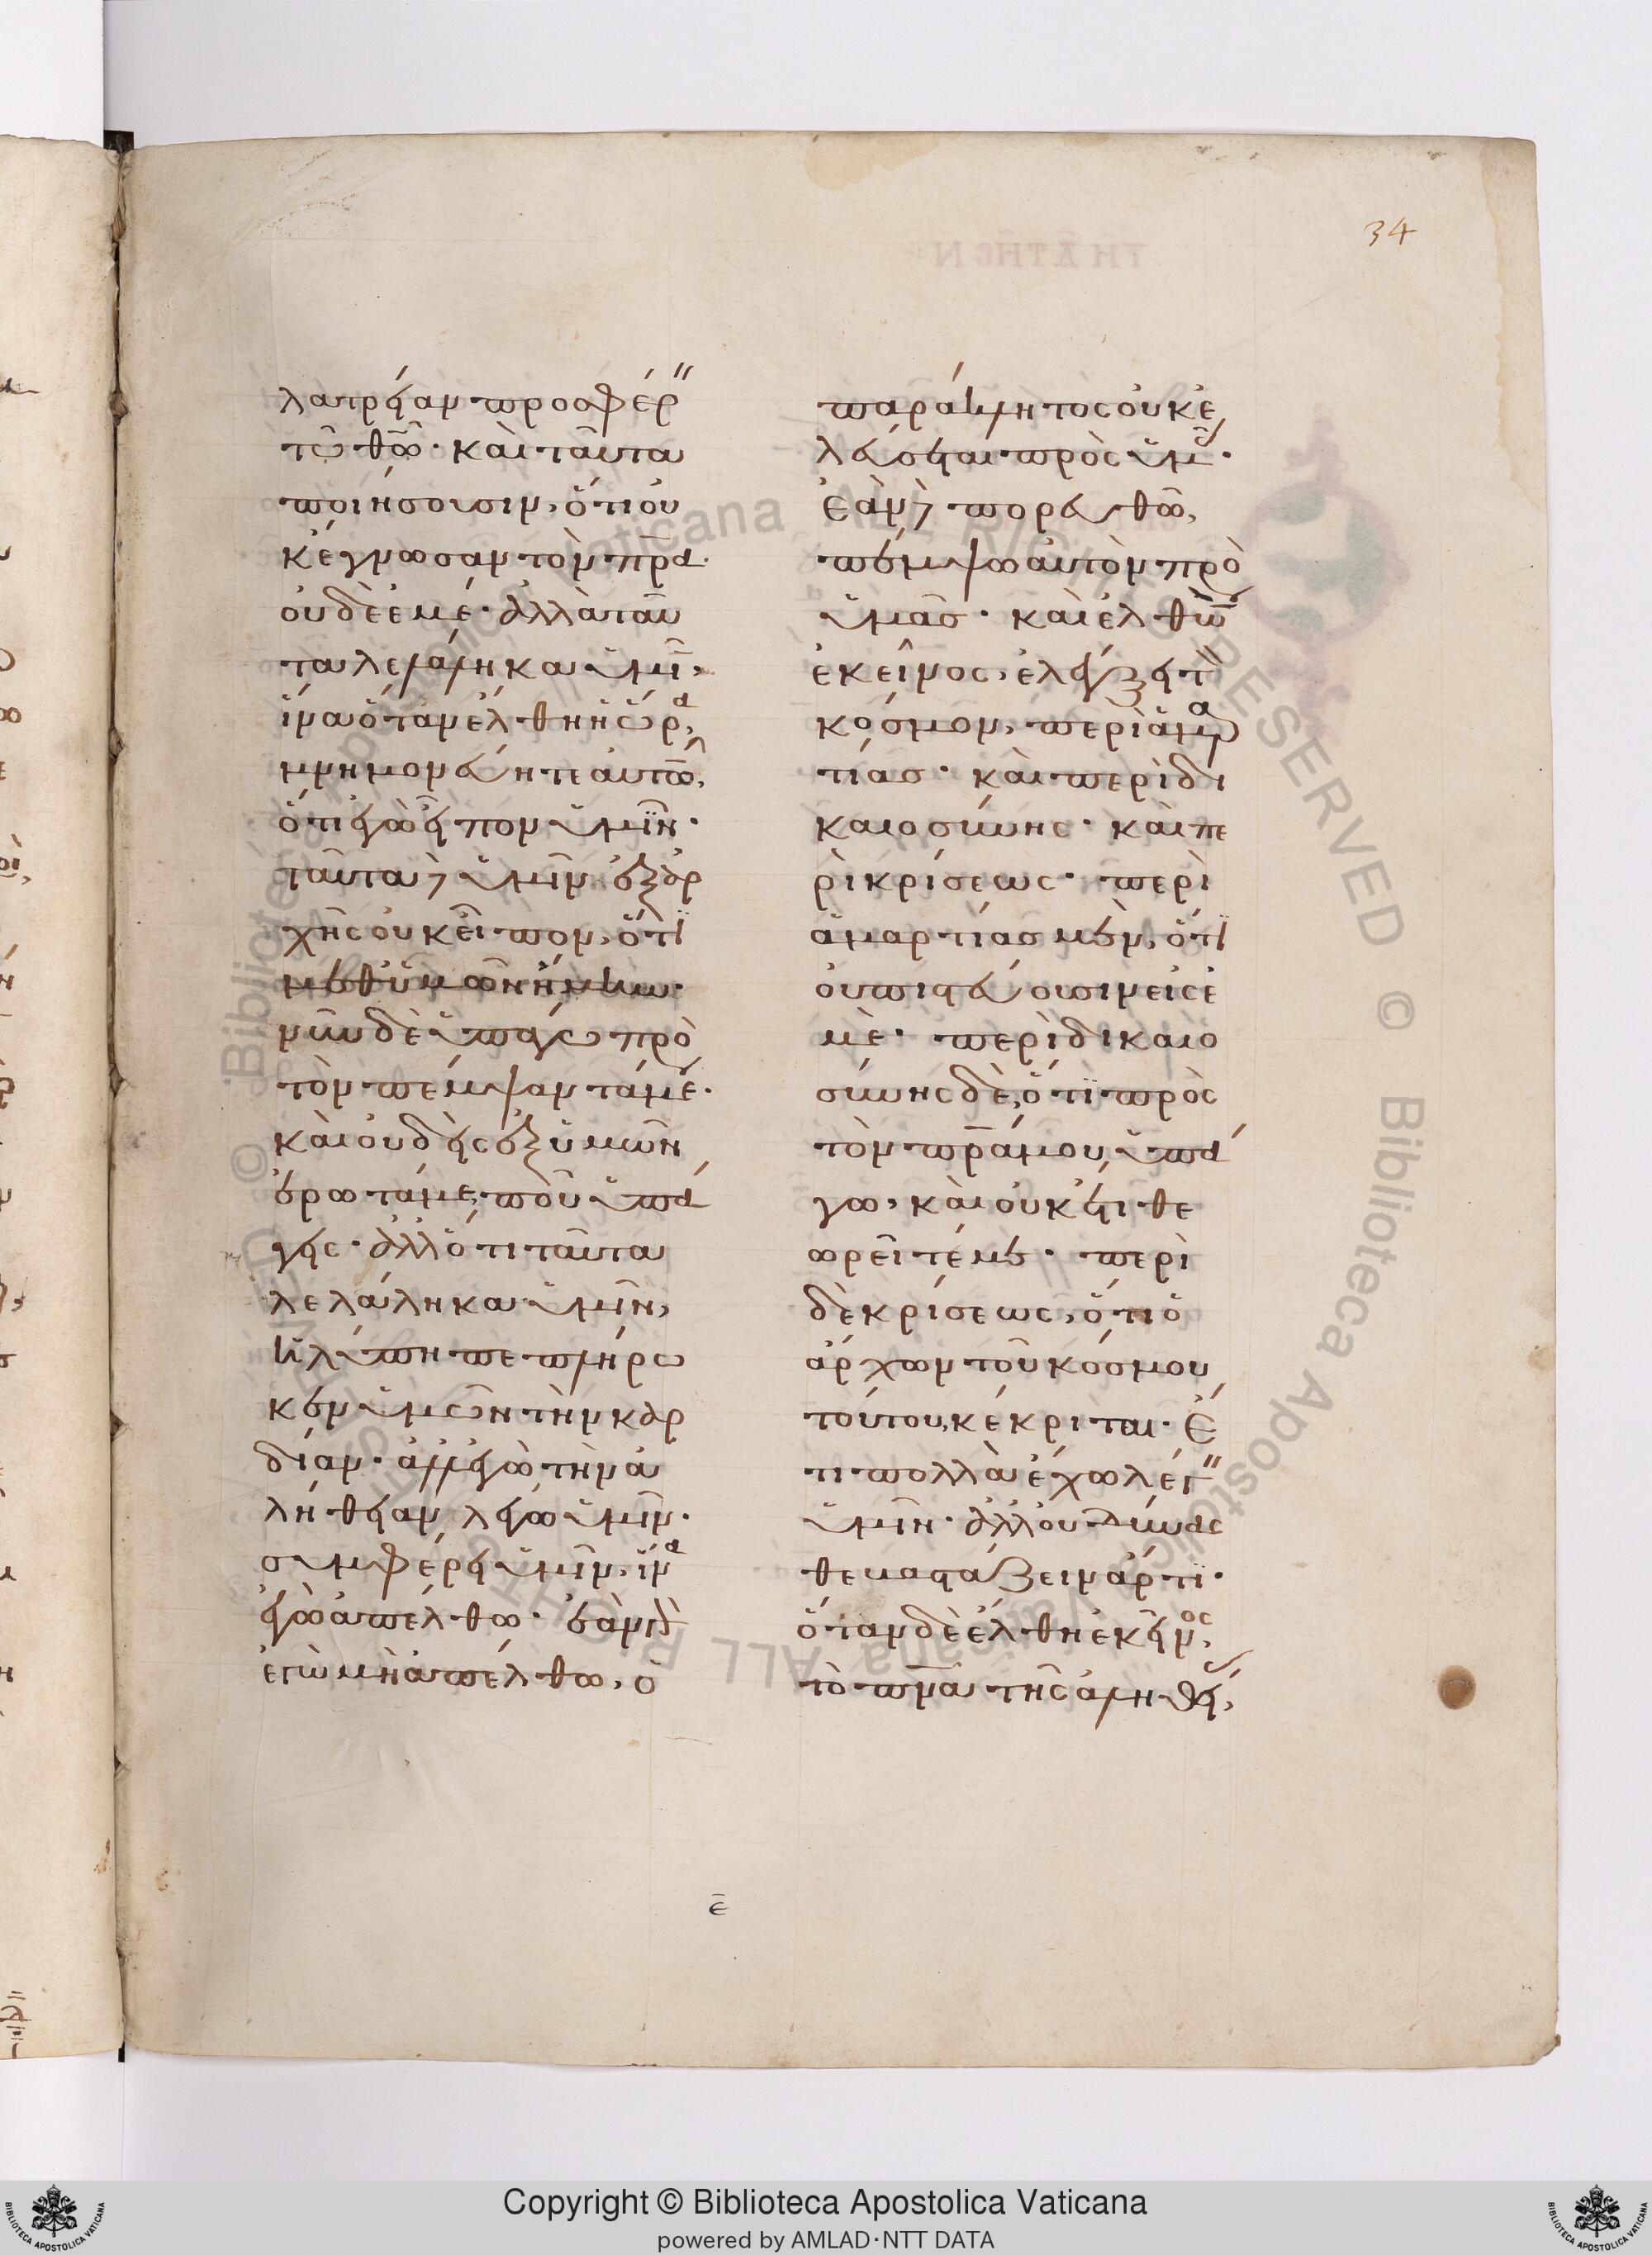 34
λατρείαν προσφέρ
τῶ θῶ· καὶ ταῦτα
ποιήσουσιν, ὅτι οὐ
κ ἔγνωσαν τὸν πρα·
οὐδὲ ἐμέ· ἀλλὰ ταῦ
τα λελάληκα ὑμῖ,
ἵνα ὅταν ἔλθη ἡ ὥρα,
μνημονεύητε αὐτῶ,
ὅτι ἐγὼ εἶπον ὑμῖν·
ταῦτα δὲ ὑμῖν ἐξ ἀρ
χῆς οὐκ εἶπον, ὅτι
μεθ' ὑμῶν ἤμην·
νῦν δὲ ὑπάγω πρὸ
τὸν πέμψαντά με·
καὶ οὐδεὶς ἐξ ὑμῶν
ἐρωτά με, ποῦ ὑπά
γεις· ἀλλ' ὅτι ταῦτα
λελάληκα ὑμῖν,
ἡ λύπη πεπλήρω
κεν ὑμῶν τὴν καρ
δίαν· ἀλλ' ἐγὼ τὴν ἀ
λήθειαν λέγω ὑμῖν·
συμφέρει ὑμῖν, ἵνα
ἐγὼ ἀπέλθω· ἐὰν γὰρ
ἐγὼ μὴ ἀπέλθω, ὁ
παράκλητος οὐκ ἐ
λεύσεται πρὸς ὑμᾶς·
Ἐὰν δὲ πορευθῶ,
πέμψω αὐτὸν πρὸ
ὑμᾶς· καὶ ἐλθὼν
ἐκεῖνος, ἐλέγξει τ
κόσμον, περὶ ἁμαρ
τίας· καὶ περὶ δι
καιοσύνης· καὶ πε
ρὶ κρίσεως· περὶ
ἁμαρτίας μὲν, ὅτι
οὐ πιστεύουσιν εἰς ἐ
μὲ· περὶ δικαιο
σύνης δὲ, ὅτι πρὸς
τὸν πρα μου ὑπά
γω, καὶ οὐκ ἔτι θε
ωρεῖτέ με· περὶ
δὲ κρίσεως, ὅτι ὁ
ἄρχων τοῦ κόσμου
τούτου, κέκριται· Ἔ
τι πολλὰ ἔχω λέγ
ὑμῖν· ἀλλ' οὐ δύνασ
θε βαστάζειν ἄρτι·
ὅταν δὲ ἔλθη ἐκεῖνος,
τὸ πνα τῆς ἀληθεί,
ε̄
Copyright © Biblioteca Apostolica Vaticana
powered by AMLAD·NTT DATA